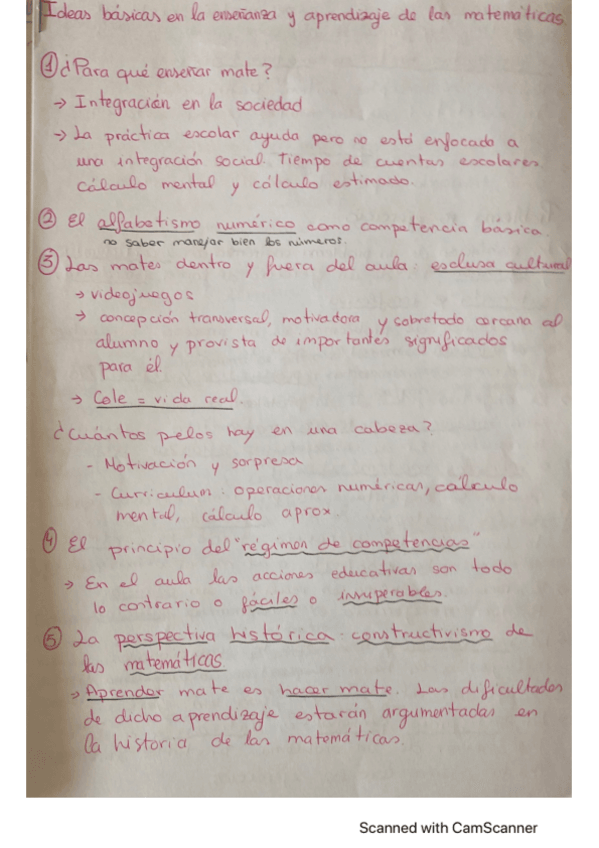 Ideas básicas en la enseñanza y aprendizaje de las matemáticas.
① ¿Para qué enseñar mate?
→ Integración en la sociedad
→ La práctica escolar ayuda pero no está enfocado a
una integración social. Tiempo de cuentas escolares.
cálculo mental y cálculo estimado.
② El alfabetismo numérico como competencia básica.
no saber manejar bien los números.
③ Las mates dentro y fuera del aula: esclusa cultural
→ videojuegos
→ concepción transversal, motivadora y sobretodo cercana al
alumno y provista de importantes significados
para él.
→ Cole = vida real.
¿Cuántos pelos hay en una cabeza?
- Motivación y sorpresa
- Curriculum: operaciones numéricas, cálculo
mental, cálculo aprox.
④ El principio del "régimen de competencias"
→ En el aula las acciones educativas son todo
lo contrario o fáciles o insuperables.
⑤ La perspectiva histórica: constructivismo de
las matemáticas
→ Aprender mate es hacer mate. Las dificultades
de dicho aprendizaje estarán argumentadas en
la historia de las matemáticas.
Scanned with CamScanner